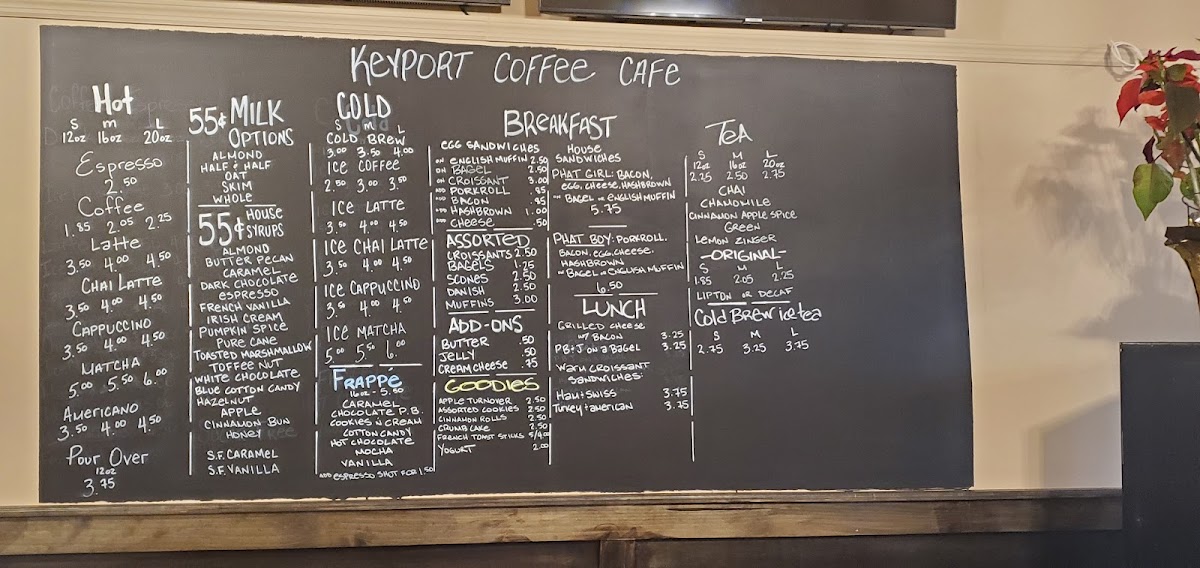 KEYPORT COFFEE CAFE
Hot
S M L
12oz 16oz 20oz
Espresso
2.50
Coffee
1.85 2.05 2.25
Latte
3.50 4.00 4.50
CHAI LATTE
3.50 4.00 4.50
CAPPUCCINO
3.50 4.00 4.50
MATCHA
5.00 5.50 6.00
AMERICANO
3.50 4.00 4.50
POUR OVER
12oz
3.75
55¢ MILK
OPTIONS
ALMOND
HALF & HALF
OAT
SKIM
WHOLE
55¢ HOUSE
SYRUPS
ALMOND
BUTTER PECAN
CARAMEL
DARK CHOCOLATE
ESPRESSO
FRENCH VANILLA
IRISH CREAM
PUMPKIN SPICE
PURE CANE
TOASTED MARSHMALLOW
TOFFEE NUT
WHITE CHOCOLATE
BLUE COTTON CANDY
HAZELNUT
APPLE
CINNAMON BUN
HONEY
S.F. CARAMEL
S.F. VANILLA
COLD
S M L
COLD BREW
3.00 3.50 4.00
ICE COFFEE
2.50 3.00 3.50
ICE LATTE
3.50 4.00 4.50
ICE CHAI LATTE
3.50 4.00 4.50
ICE CAPPUCCINO
3.50 4.00 4.50
ICE MATCHA
5.00 5.50 6.00
FRAPPE
16oz - 5.50
CARAMEL
CHOCOLATE P.B.
COOKIES N CREAM
COTTON CANDY
HOT CHOCOLATE
MOCHA
VANILLA
ADD ESPRESSO SHOT FOR 1.50
BREAKFAST
EGG SANDWICHES
ON ENGLISH MUFFIN 2.50
ON BAGEL 2.50
ON CROISSANT 3.00
ADD PORKROLL .85
ADD BACON .85
ADD HASHBROWN 1.00
ADD CHEESE .50
ASSORTED
CROISSANTS 2.50
BAGELS 1.25
SCONES 2.50
DANISH 2.50
MUFFINS 3.00
ADD-ONS
BUTTER .50
JELLY .50
CREAM CHEESE .75
GOODIES
APPLE TURNOVER 2.50
ASSORTED COOKIES 2.50
CINNAMON ROLLS 2.50
CRUMB CAKE 2.50
FRENCH TOAST STICKS 5/4.00
YOGURT 2.00
HOUSE
SANDWICHES
PHAT GIRL: BACON,
EGG, CHEESE, HASHBROWN
ON BAGEL or ENGLISH MUFFIN
5.75
PHAT BOY: PORKROLL,
BACON, EGG, CHEESE,
HASHBROWN
ON BAGEL or ENGLISH MUFFIN
6.50
LUNCH
GRILLED CHEESE
W/ BACON 3.25
PB+J ON A BAGEL 3.25
WARM CROISSANT
SANDWICHES:
Ham + Swiss 3.75
Turkey + american 3.75
TEA
S M L
12oz 16oz 20oz
2.25 2.50 2.75
CHAI
CHAMOMILE
CINNAMON APPLE SPICE
GREEN
LEMON ZINGER
-ORIGINAL-
S M L
1.85 2.05 2.25
LIPTON or DECAF
Cold BREW ice tea
S M L
2.75 3.25 3.75